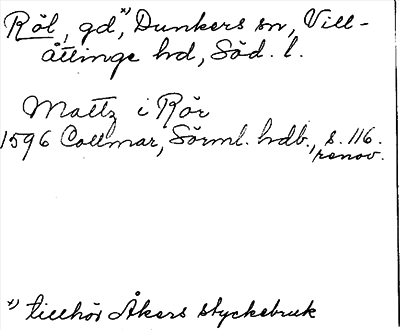 Röl, gd*), Dunkers sn, Vill-
åttinge hd, Söd. l.
Mattz i Rör
1596 Collmar, Sörml. hdb., s. 116.
renov.
*) tillhör Åkers styckebruk